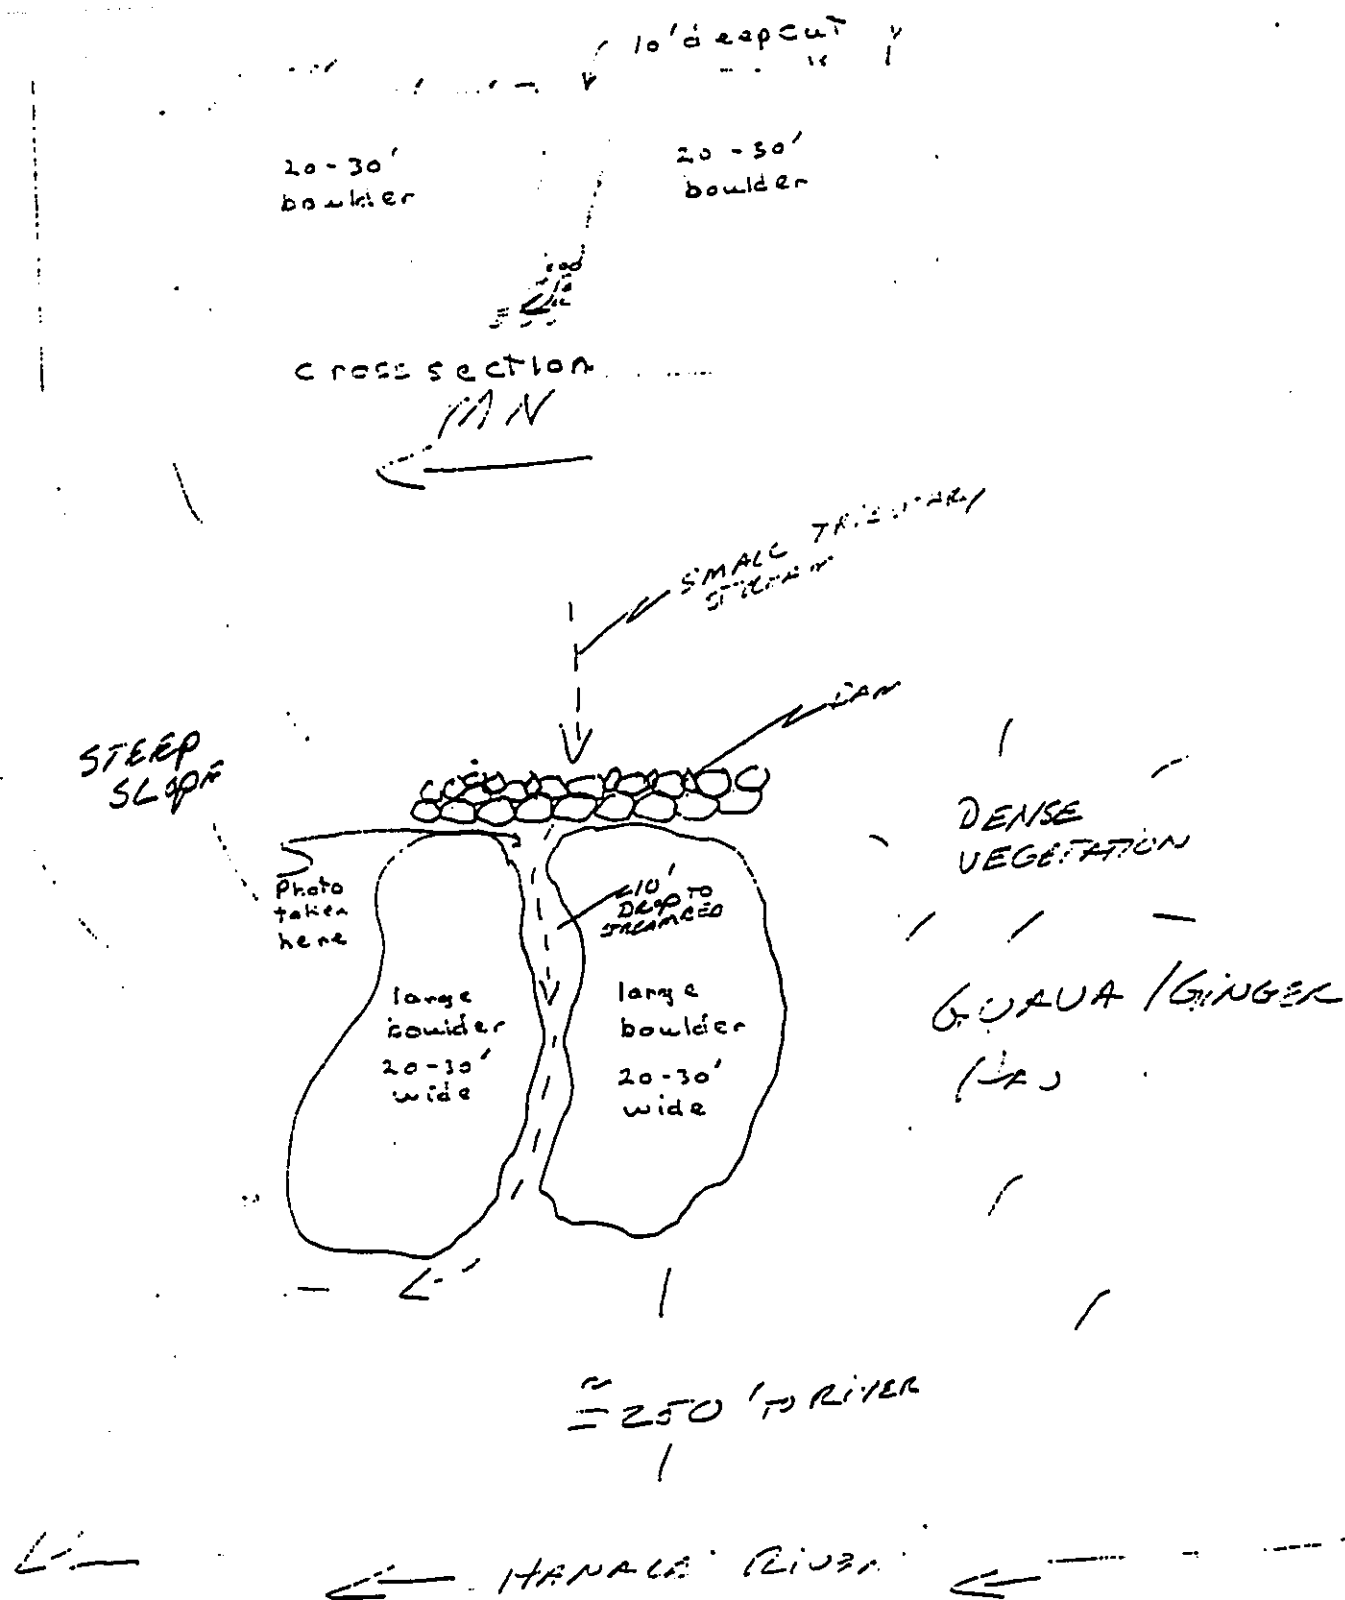 10' deep cut
20-30'
boulder
20-30'
boulder
cross section
MN
SMALL TRIBUTARY
STREAM
DAM
STEEP
SLOPE
DENSE
VEGETATION
Photo
taken
here
10'
DROP TO
STREAMBED
large
boulder
20-30'
wide
large
boulder
20-30'
wide
GUAVA / GINGER
HAU
≅ 250' TO RIVER
HANALEI RIVER